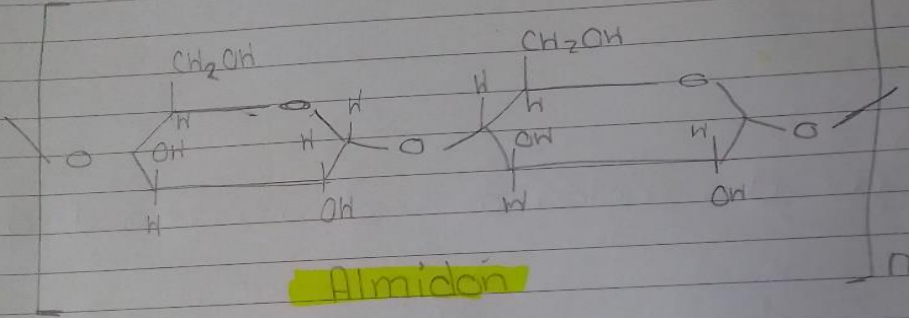 CH₂OH CH₂OH
H O H H H O
O OH H O OH H O
H OH H OH
Almidón
n